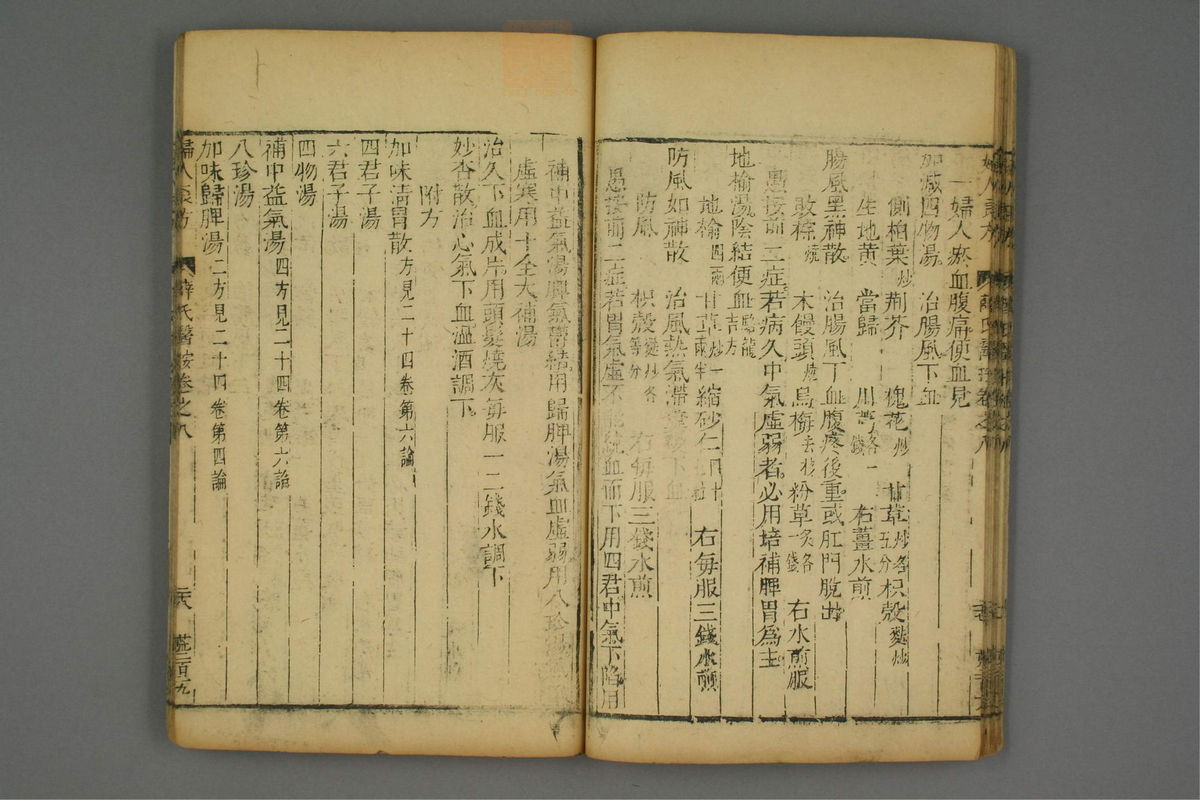 一婦人瘀血腹痛便血見
加減四物湯 治腸風下血
側柏葉炒 荊芥 槐花炒 甘草炒各五分 枳殼麩炒
生地黃 當歸 川芎各一錢 右薑水煎
腸風黑神散 治腸風下血腹疼後重或肛門脫出
敗棕燒 木饅頭燒 烏梅去核 粉草炙各一錢 右水煎服
愚按前二症若病久中氣虛弱者必用培補脾胃爲主
地榆湯 陰結便血
地榆四兩 甘草 縮砂仁四十 右每服三錢水煎
防風如神散 治風熱氣滯下血
防風 枳殼麩炒各等分 右每服三錢水煎
愚按前二症若胃氣虛不能統血而下用四君中氣下陷用
補中益氣湯脾氣鬱結用歸脾湯氣血虛弱用八珍湯
虛寒用十全大補湯
治久下血成片用頭髮燒灰每服一二錢水調下
妙香散治心氣下血溫酒調下
附方
加味清胃散方見二十四卷第六論
四君子湯
六君子湯
四物湯
補中益氣湯四方見二十四卷第六論
八珍湯
加味歸脾湯二方見二十四卷第四論
婦人良方 薛氏醫按卷之八